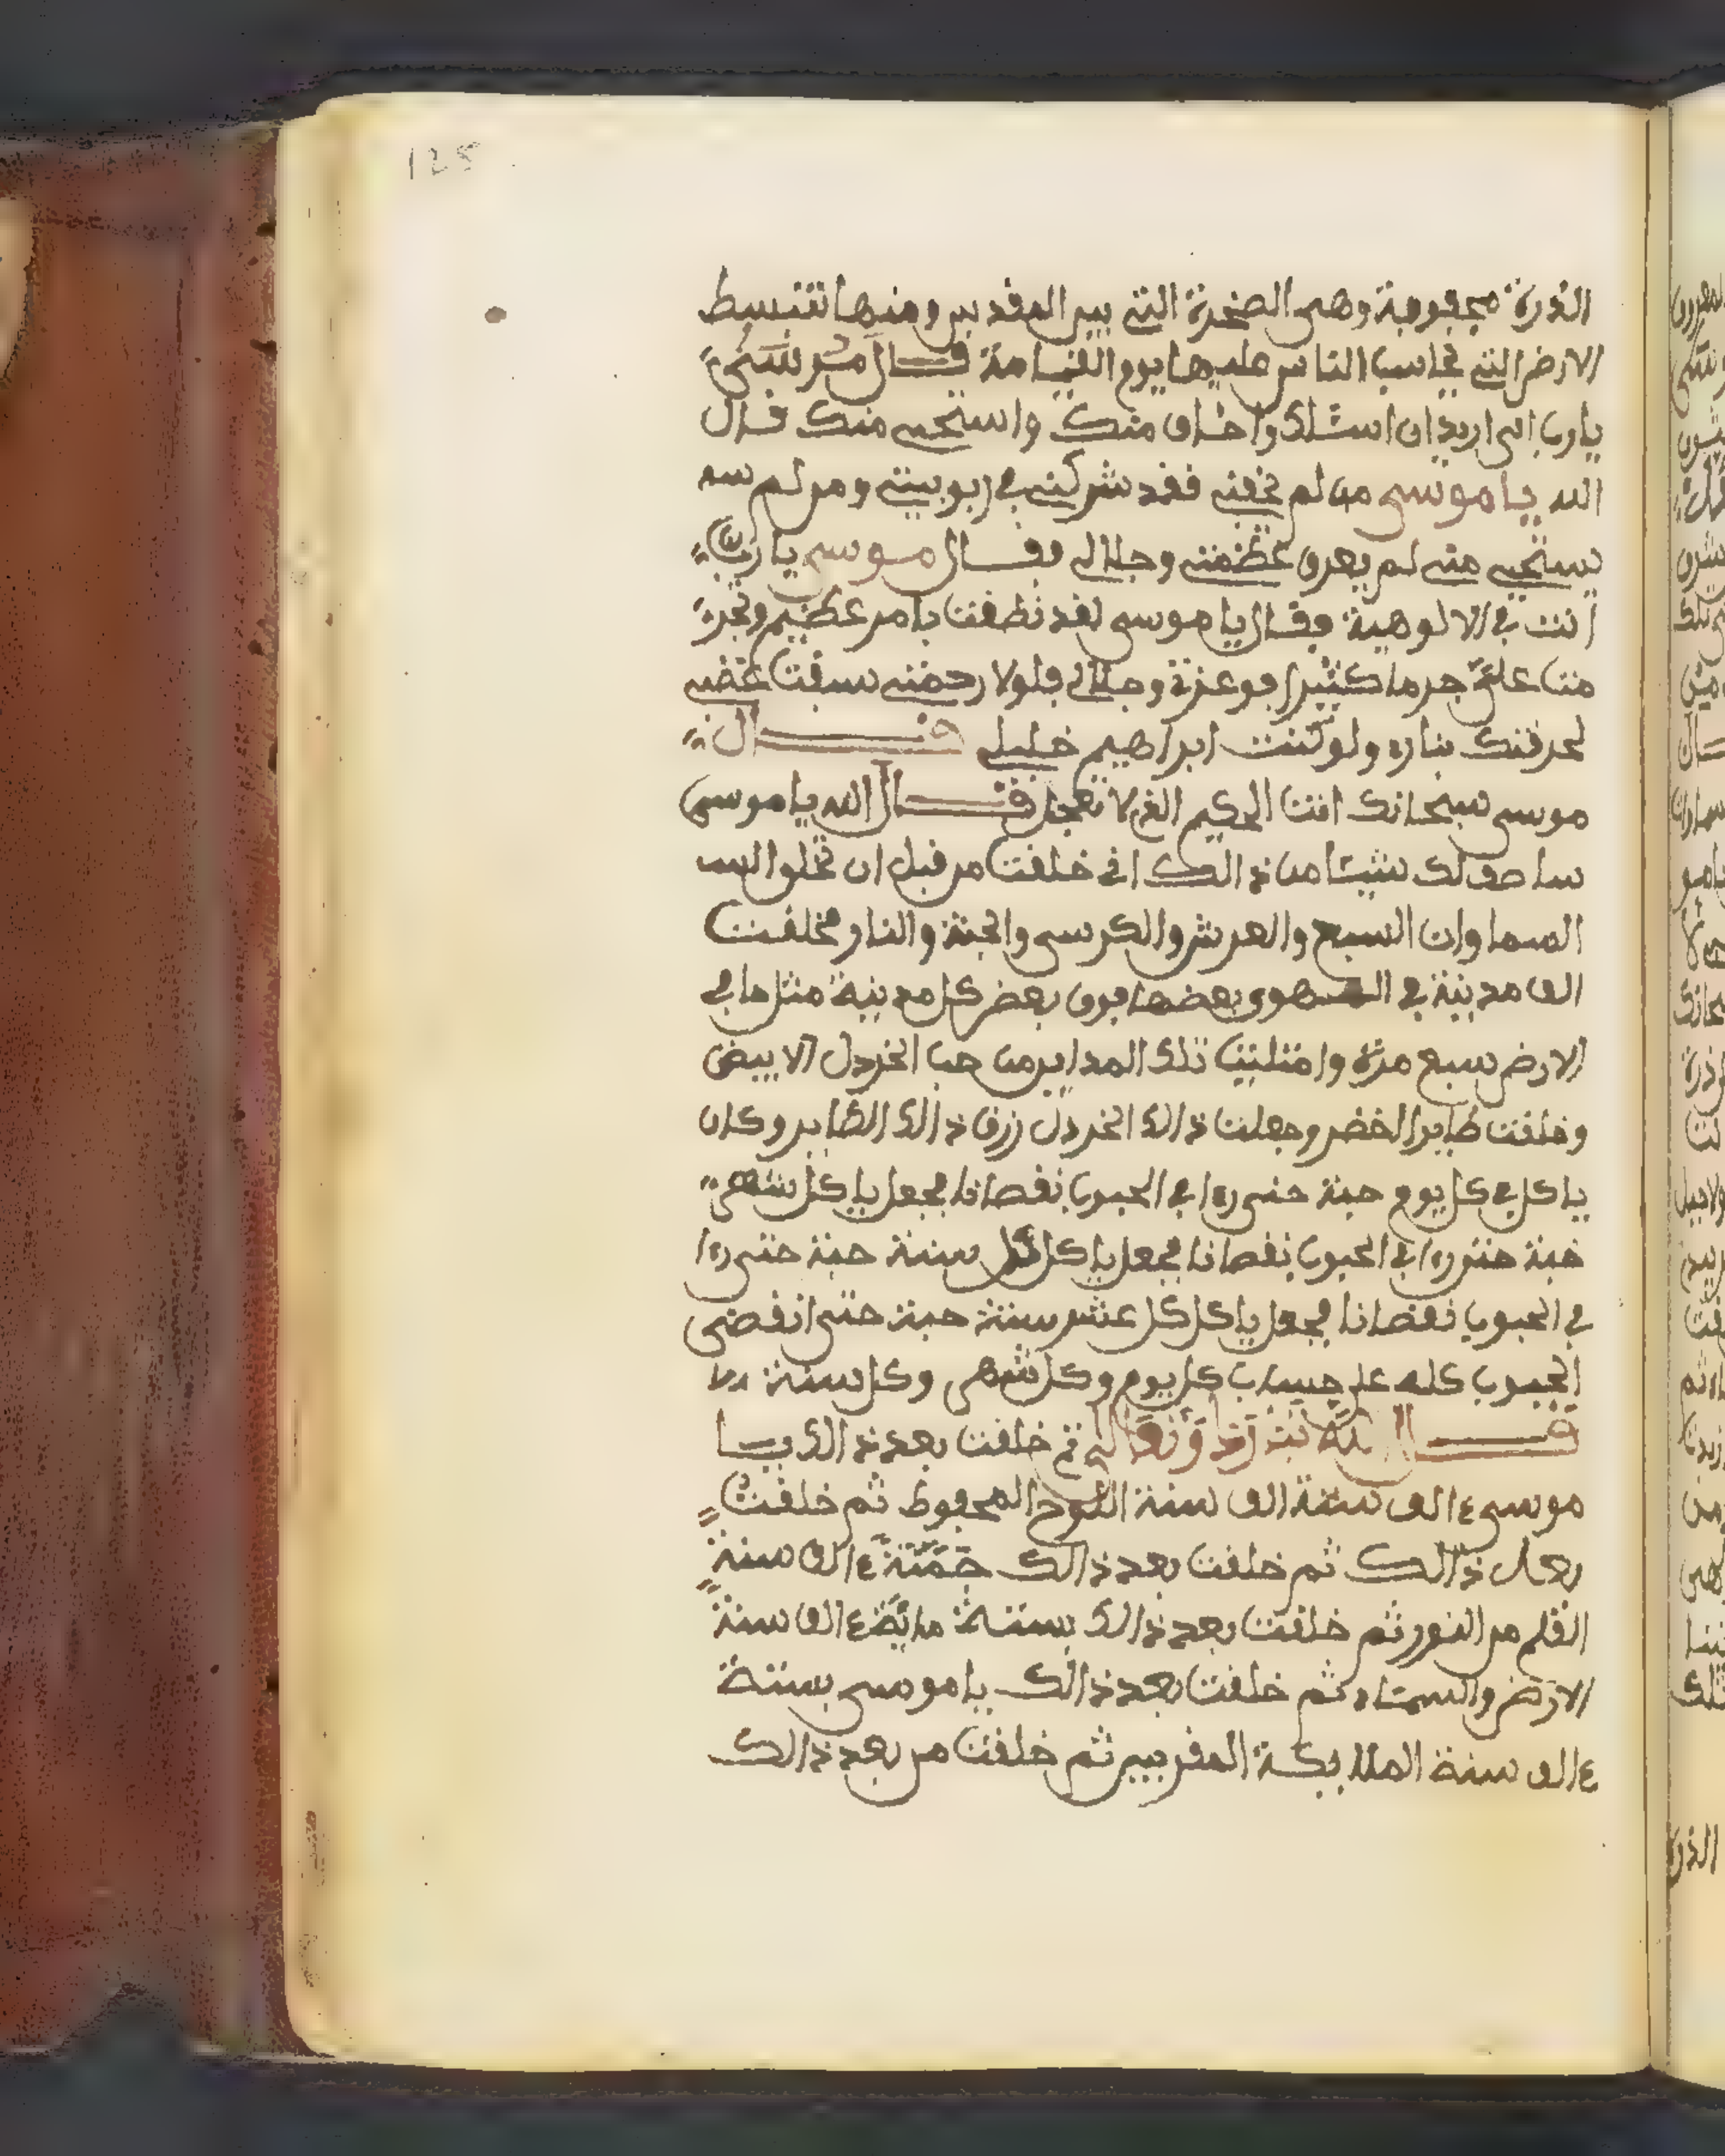 125
الذرة مجفوفة وهي الصخرة التي بين المقدسين ومنها تنبسط
الارض التي يحاسب الناس عليها يوم القيامة قال موسى
يا رب اني اريد ان اسئلك واخاف منك واستحيي منك قال
الله يا موسى من لم يخفني فقد شركني في ربوبيتي ومن لم سه
يستحيي مني لم يعرف عظمتي وجلالي فقال موسى يا رب
انت في الالوهية فقال يا موسى لقد نطقت بامر عظيم وتجر
منت علي جرما كثيرا فوعزة وجلالي فلولا رحمتي سبقت غضبي
لحرقتك بناره ولو كنت ابراهيم خليلي قال
موسى سبحانك انت الحكيم الذي لا تعجل قال الله يا موسى
ساصف لك شيئا من ذالك اني خلقت من قبل ان تخلوا السـ
السماوات السبع والعرش والكرسي والجنة والنار فخلقت
الف مدينة في الهوى بعضها فوق بعض كل مدينة مثل ما في
الارض سبع مرة وامتليت تلك المداين من حب الخردل الابيض
وخلقت طايرا الخضر وجعلت ذالك الخردل رزق ذالك الطاير وكان
ياكل في كل يوم حبة حتى رءا في الحبوب نقصانا فجعل ياكل شهر
حبة حتى رءا في الحبوب نقصانا فجعل ياكل كل سنة حبة حتى رءا
في الحبوب نقصانا فجعل ياكل كل عشر سنة حبة حتى انقضى
الحبوب كله على حساب كل يوم وكل شهر وكل سنة
قال الله تبارك وتعالى ثم خلقت بعد ذالك يا
موسى الف ستة الف سنة اللوح المحفوظ ثم خلقت
بعد ذالك ثم خلقت بعد ذالك الف سنة
القلم من النور ثم خلقت بعد ذالك بستة ماية الف سنة
الارض والسماء ثم خلقت بعد ذالك يا موسى بستة
الف سنة الملايكة المقربين ثم خلقت من بعد ذالك